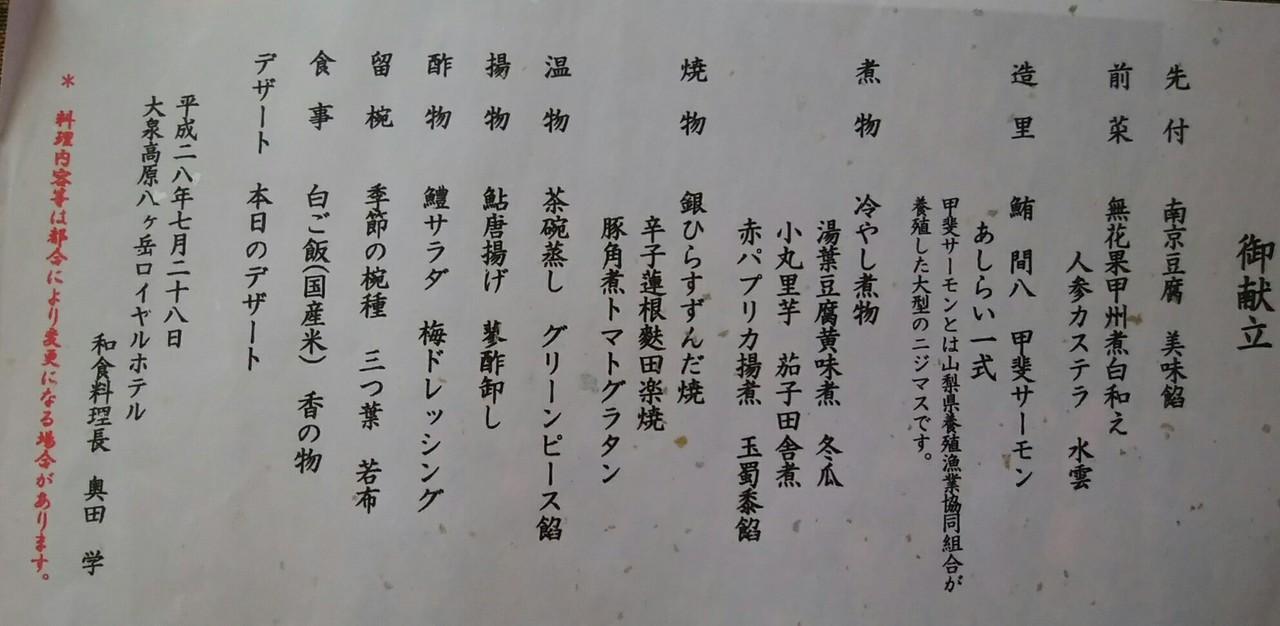 御献立
先付　南京豆腐　美味餡
前菜　無花果甲州煮白和え
人参カステラ　水雲
造里　鮪　間八　甲斐サーモン
あしらい一式
甲斐サーモンとは山梨県養殖漁業協同組合が
養殖した大型のニジマスです。
煮物　冷やし煮物
湯葉豆腐黄味煮　冬瓜
小丸里芋　茄子田舎煮
赤パプリカ揚煮　玉蜀黍餡
焼物　銀ひらすずんだ焼
辛子蓮根麩田楽焼
豚角煮トマトグラタン
温物　茶碗蒸し　グリーンピース餡
揚物　鮎唐揚げ　蓼酢卸し
酢物　鱧サラダ　梅ドレッシング
留椀　季節の椀種　三つ葉　若布
食事　白ご飯(国産米)　香の物
デザート　本日のデザート
平成二八年七月二十八日
大泉高原八ヶ岳ロイヤルホテル
和食料理長　奥田　学
＊　料理内容等は都合により変更になる場合があります。